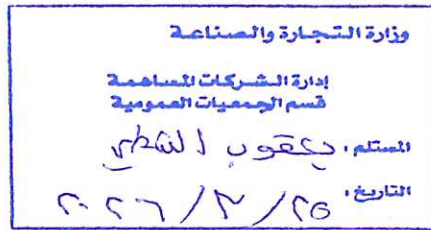 وزارة التجارة والصناعة
إدارة الشركات المساهمة
قسم الجمعيات العمومية
المستلم: يعقوب
التاريخ: ٢٥/٣/٢٠٢٦